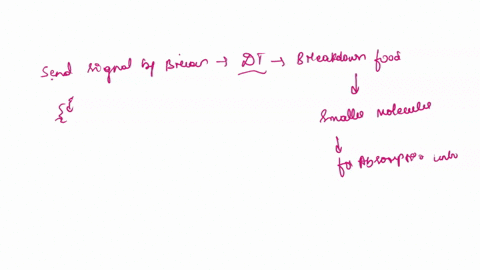 Send signal by Brian → DT → Breakdown food
↓
Smaller molecule
↓
for Absorption